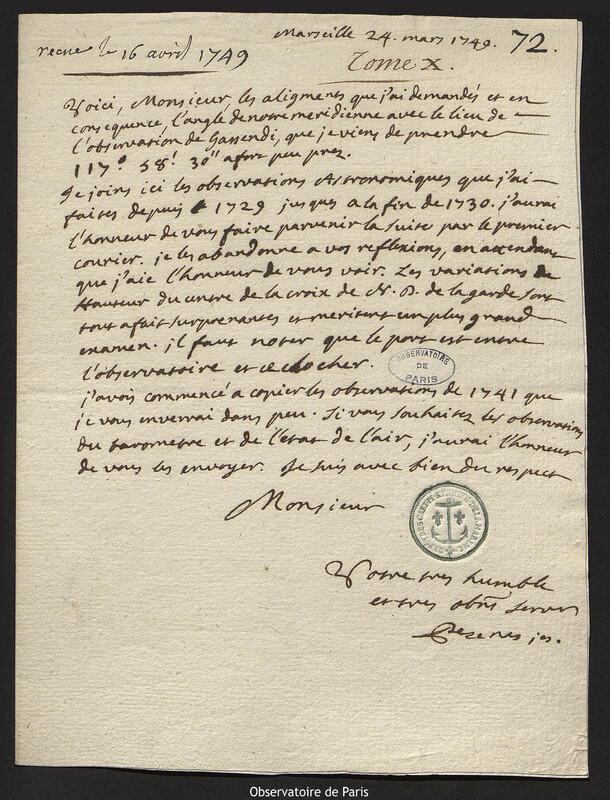 Marseille 24. mars 1749. 72.
recüe le 16 avril 1749
Tome X.
Voici, Monsieur, les alignemens que j'ai demandés et en
consequence, l'angle de notre meridienne avec le lieu de
l'observation de Gassendi, que je viens de prendre
117° 58' 30" a fort peu prez.
Je joins ici les observations Astronomiques que j'ai
faites depuis 1729 jusques a la fin de 1730. j'aurai
l'honneur de vous faire parvenir la suite par le premier
courier. je les abandonne a vos reflexions, en attendant
que j'aie l'honneur de vous voir. Les variations de
hauteur du centre de la croix de N. D. de la garde sont
tout a fait surprenantes et meritent un plus grand
examen. il faut noter que le port est entre
l'observatoire et ce clocher.
j'avois commencé a copier les observations de 1741 que
je vous enverrai dans peu. Si vous souhaitez les observations
du barometre et de l'etat de l'air, j'aurai l'honneur
de vous les envoyer. Je suis avec bien du respect
Monsieur
Votre tres humble
et tres obnt serviteur
Pezenas jes.
OBSERVATOIRE
DE
PARIS
Observatoire de Paris